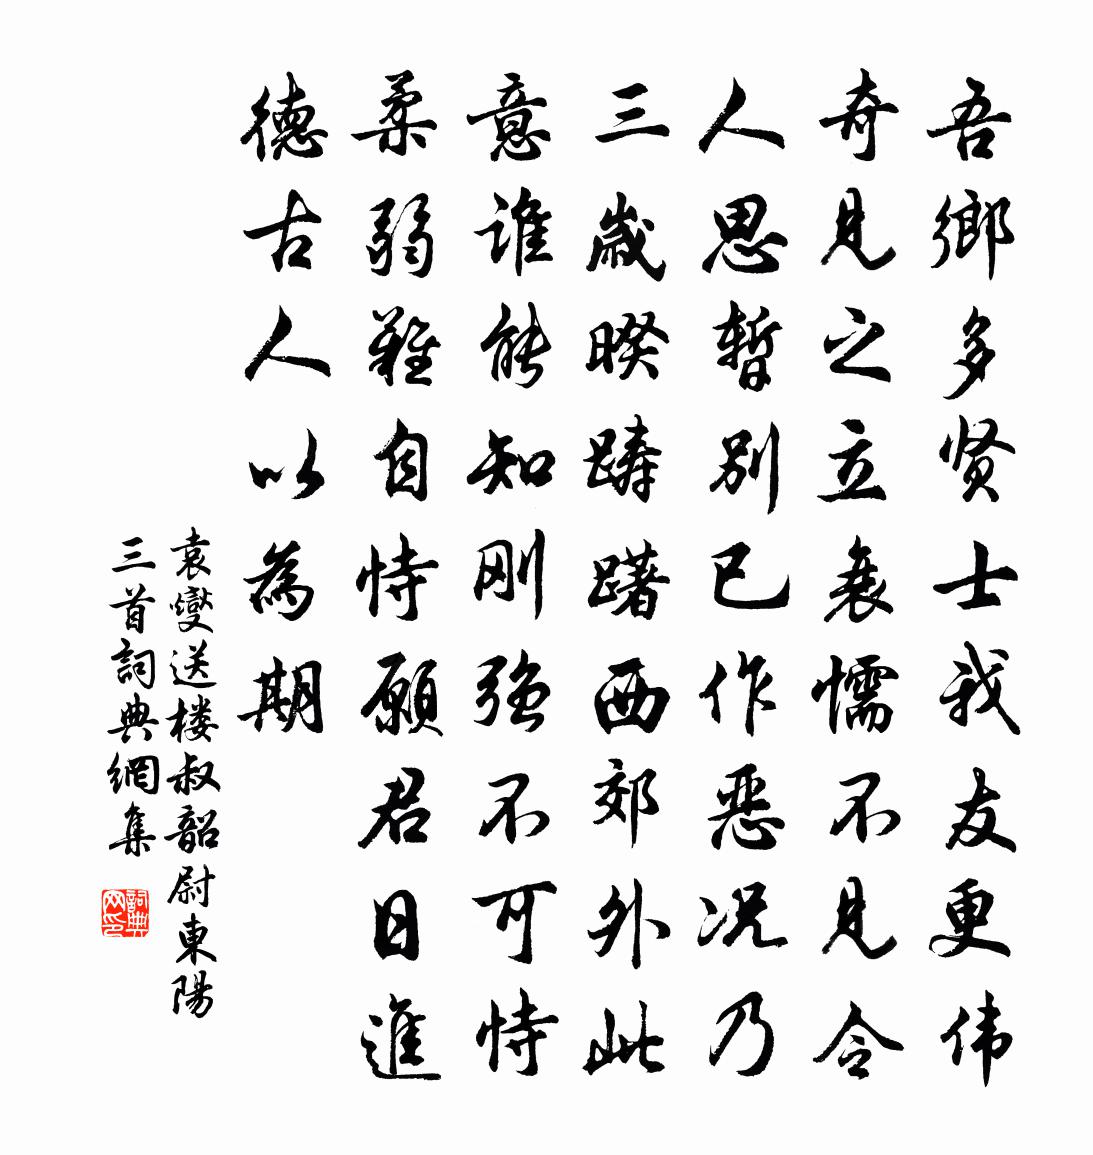 吾鄉多贤士我友更伟
奇見之立衰懦不見令
人思暫别已作恶况乃
三歲睽踌躇西郊外此
意谁能知刚强不可恃
柔弱難自恃願君日進
德古人以為期
袁燮送楼叔韶尉東陽
三首詞典網集
詞典网印